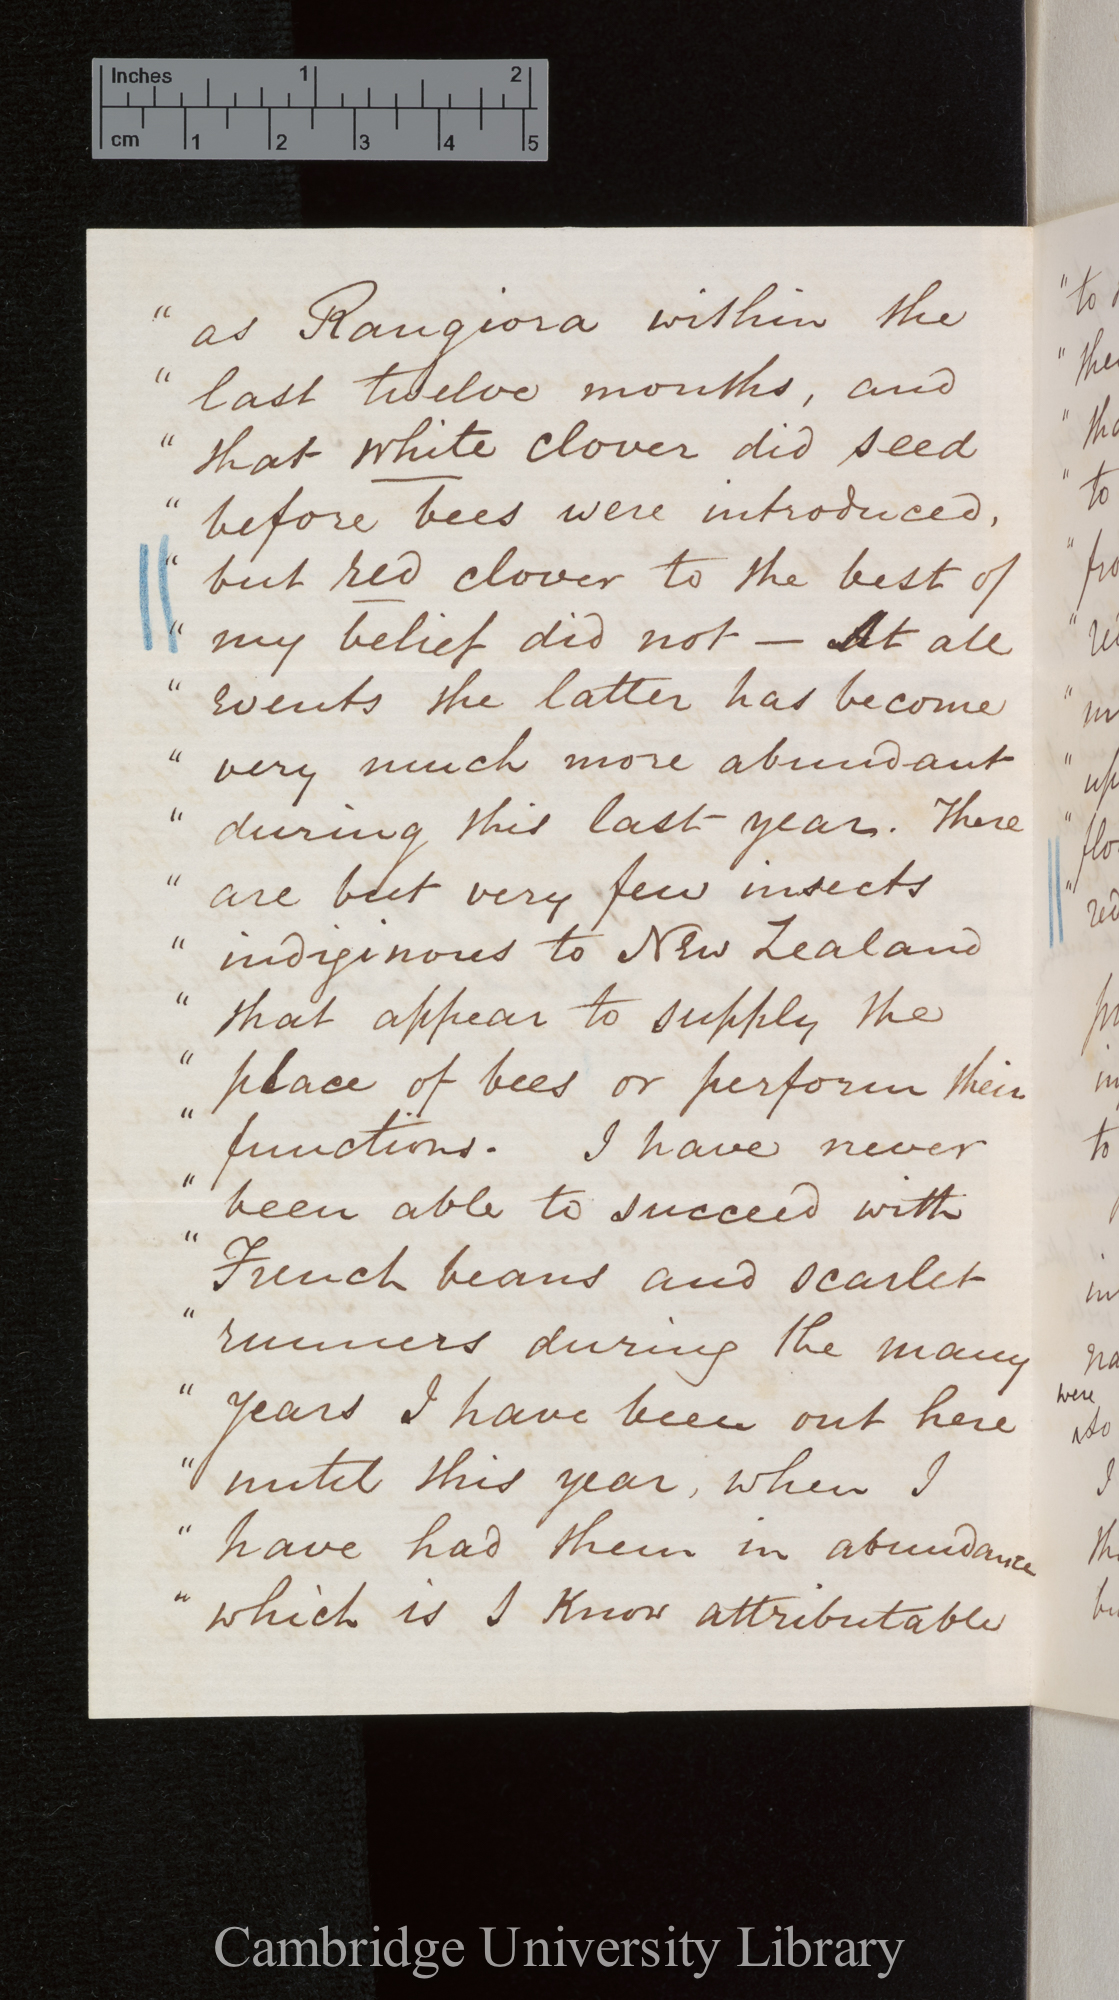 Inches 1 2
cm 1 2 3 4 5
" as Rangiora within the
" last twelve months, and
" that white clover did seed
" before bees were introduced,
" but red clover to the best of
" my belief did not — At all
" events the latter has become
" very much more abundant
" during this last year. There
" are but very few insects
" indiginous to New Zealand
" that appear to supply the
" place of bees or perform their
" functions. I have never
" been able to succeed with
" French beans and scarlet
" runners during the many
" years I have been out here
" until this year, when I
" have had them in abundance
" which is I know attributable
" to
" to
were
to
I
Cambridge University Library